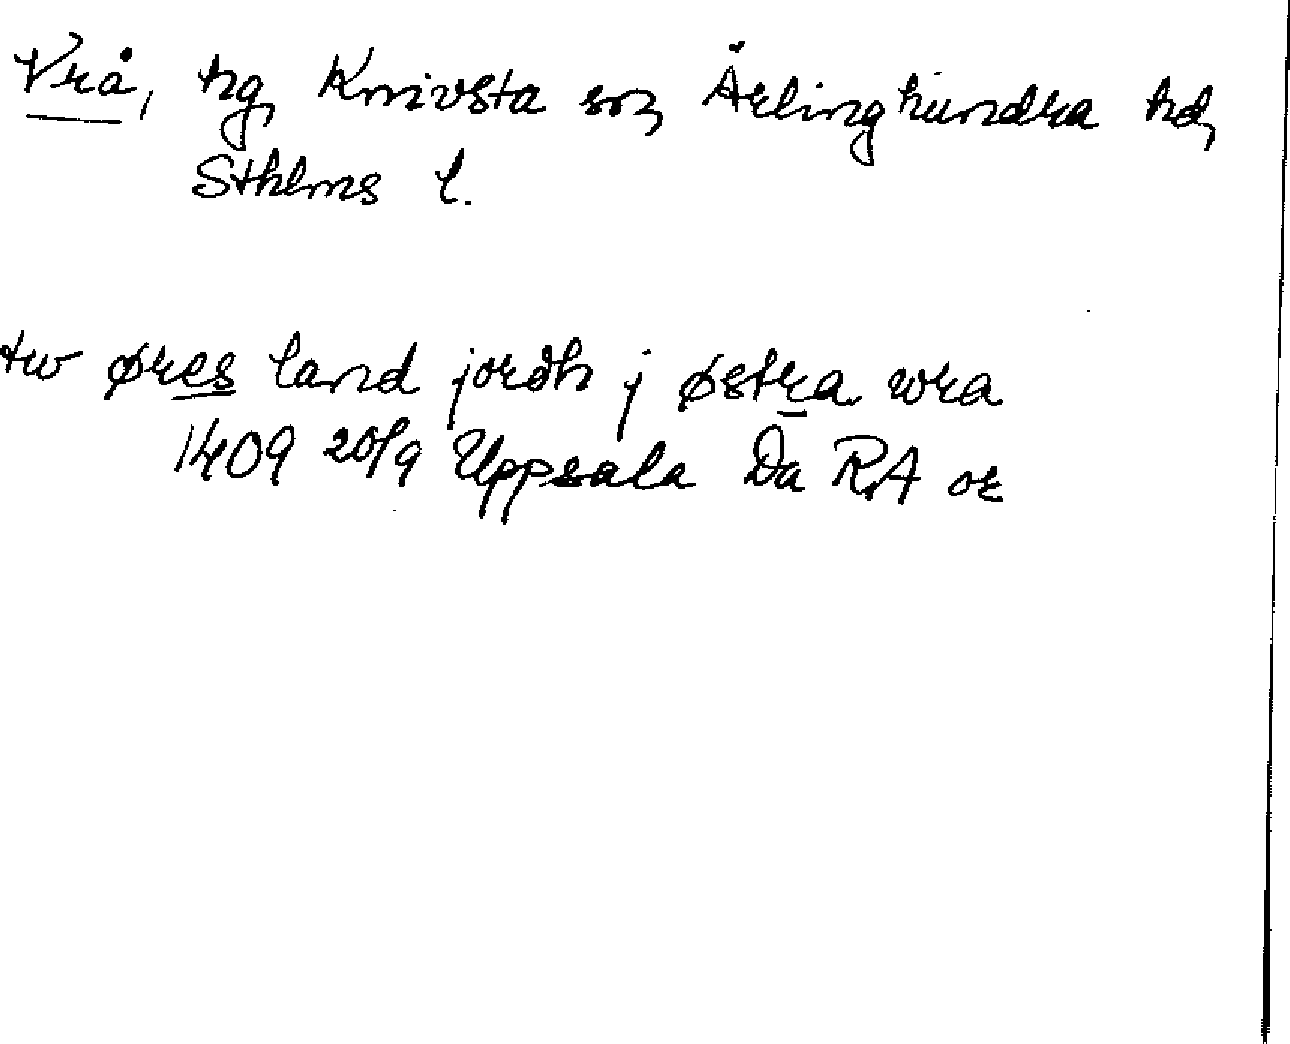 Vrå, hg, Knivsta sn, Ärlinghundra hd,
Sthlms l.
tw øres land jordh j østra wra
1409 20/9 Uppsala Da RA or